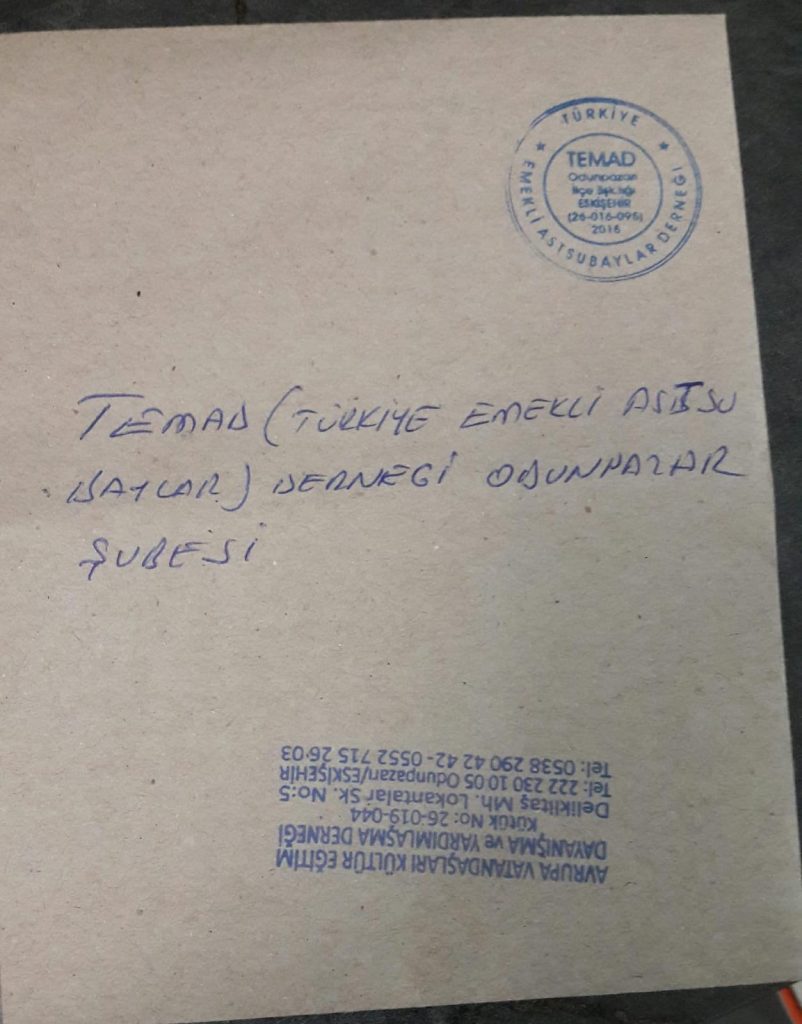 TÜRKİYE
EMEKLİ ASTSUBAYLAR DERNEĞİ
TEMAD
Odunpazarı
İlçe Bşk.lığı
ESKİŞEHİR
(26-016-095)
2016
TEMAD (TÜRKİYE EMEKLİ ASTSU
BAYLAR) DERNEGİ ODUNPAZAR
ŞUBESİ
AVRUPA VATANDAŞLARI KÜLTÜR EĞİTİM
DAYANIŞMA ve YARDIMLAŞMA DERNEĞİ
Kütük No: 26-019-044
Deliklitaş Mh. Lokantalar Sk. No:5
Tel: 222 230 10 05 Odunpazarı/ESKİŞEHİR
Tel: 0538 290 42 42 - 0552 715 26 03